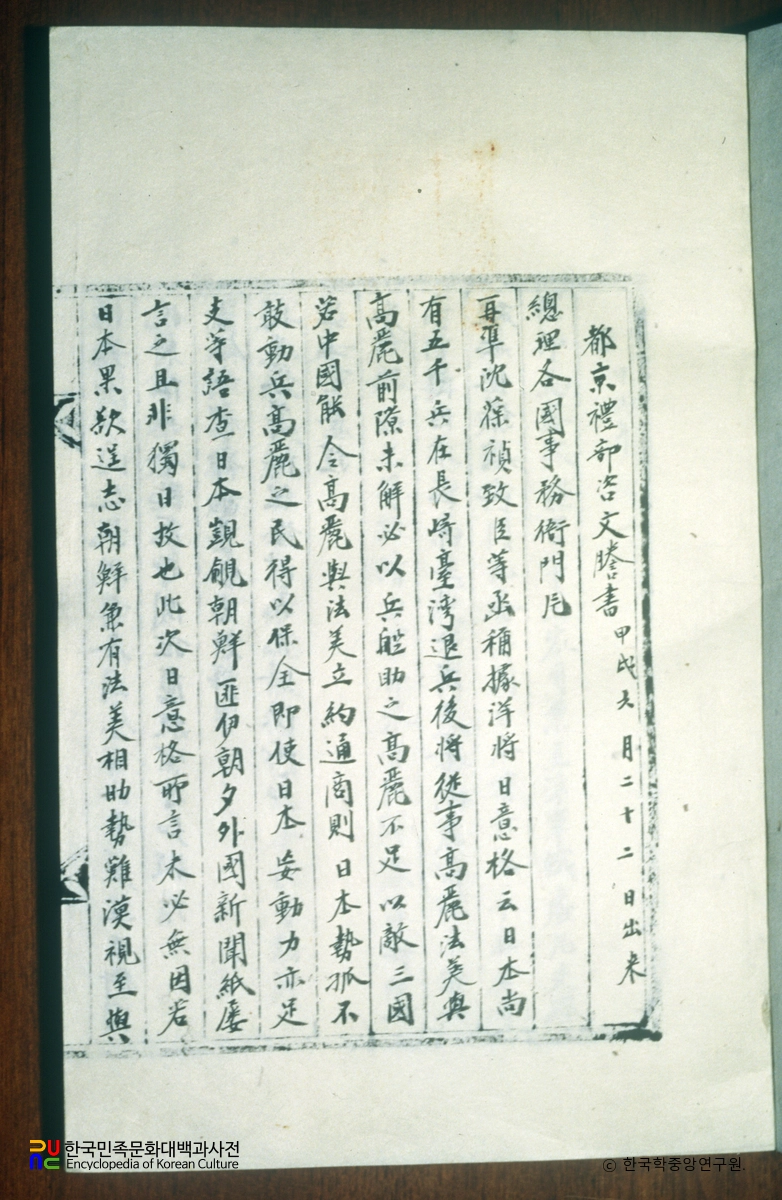 都京禮部咨文謄書 甲戌六月二十二日出來
總理各國事務衙門片
再準沈葆禎致臣等函稱據洋將日意格云日本尚
有五千兵在長崎臺灣退兵後將從事高麗法美與
高麗前隙未解必以兵船助之高麗不足以敵三國
若中國能令高麗與法美立約通商則日本勢孤不
敢動兵高麗之民得以保全即使日本妄動力亦足
支等語查日本覬覦朝鮮匪伊朝夕外國新聞紙屢
言之且非獨日技也此次日意格所言未必無因若
日本果欲逞志朝鮮兼有法美相助勢難漠視至與
한국민족문화대백과사전
Encyclopedia of Korean Culture
ⓒ 한국학중앙연구원